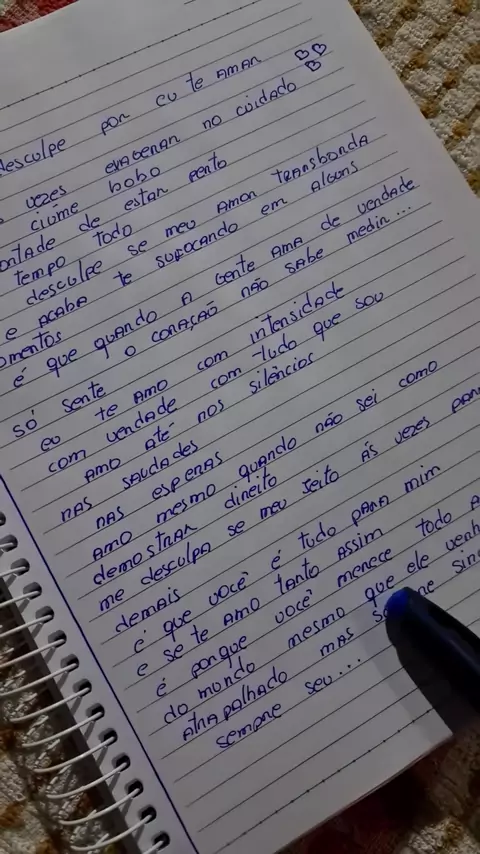 desculpe por eu te amar
vezes exagerar no cuidado
ciúme bobo
ontade de estar perto
tempo todo
desculpe se meu amor transborda
e acaba te sufocando em alguns
omentos
é que quando a gente ama de verdade
o coração não sabe medir...
só sente
eu te amo com intensidade
com verdade com tudo que sou
amo até nos silêncios
nas saudades
nas esperas
amo mesmo quando não sei como
demostrar direito
me desculpa se meu jeito ás vezes
demais
é que você é tudo para mim
e se te amo tanto assim
é porque você merece todo
do mundo mesmo que ele
atrapalhado mas
sempre seu...